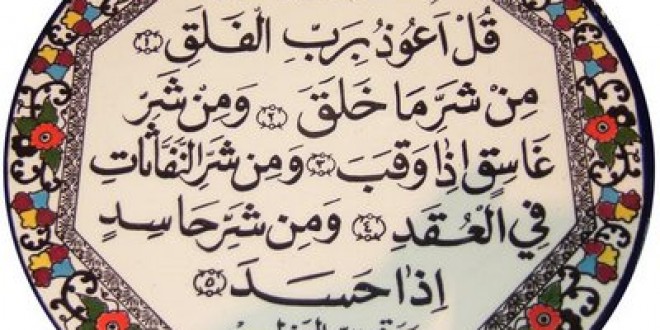 قُلْ اَعُوْذُ بِرَبِّ الْفَلَقِ ۝١
مِنْ شَرِّ مَا خَلَقَ ۝٢ وَمِنْ شَرِّ
غَاسِقٍ اِذَا وَقَبَ ۝٣ وَمِنْ شَرِّ النَّفَّاثَاتِ
فِي الْعُقَدِ ۝٤ وَمِنْ شَرِّ حَاسِدٍ
اِذَا حَسَدَ ۝٥